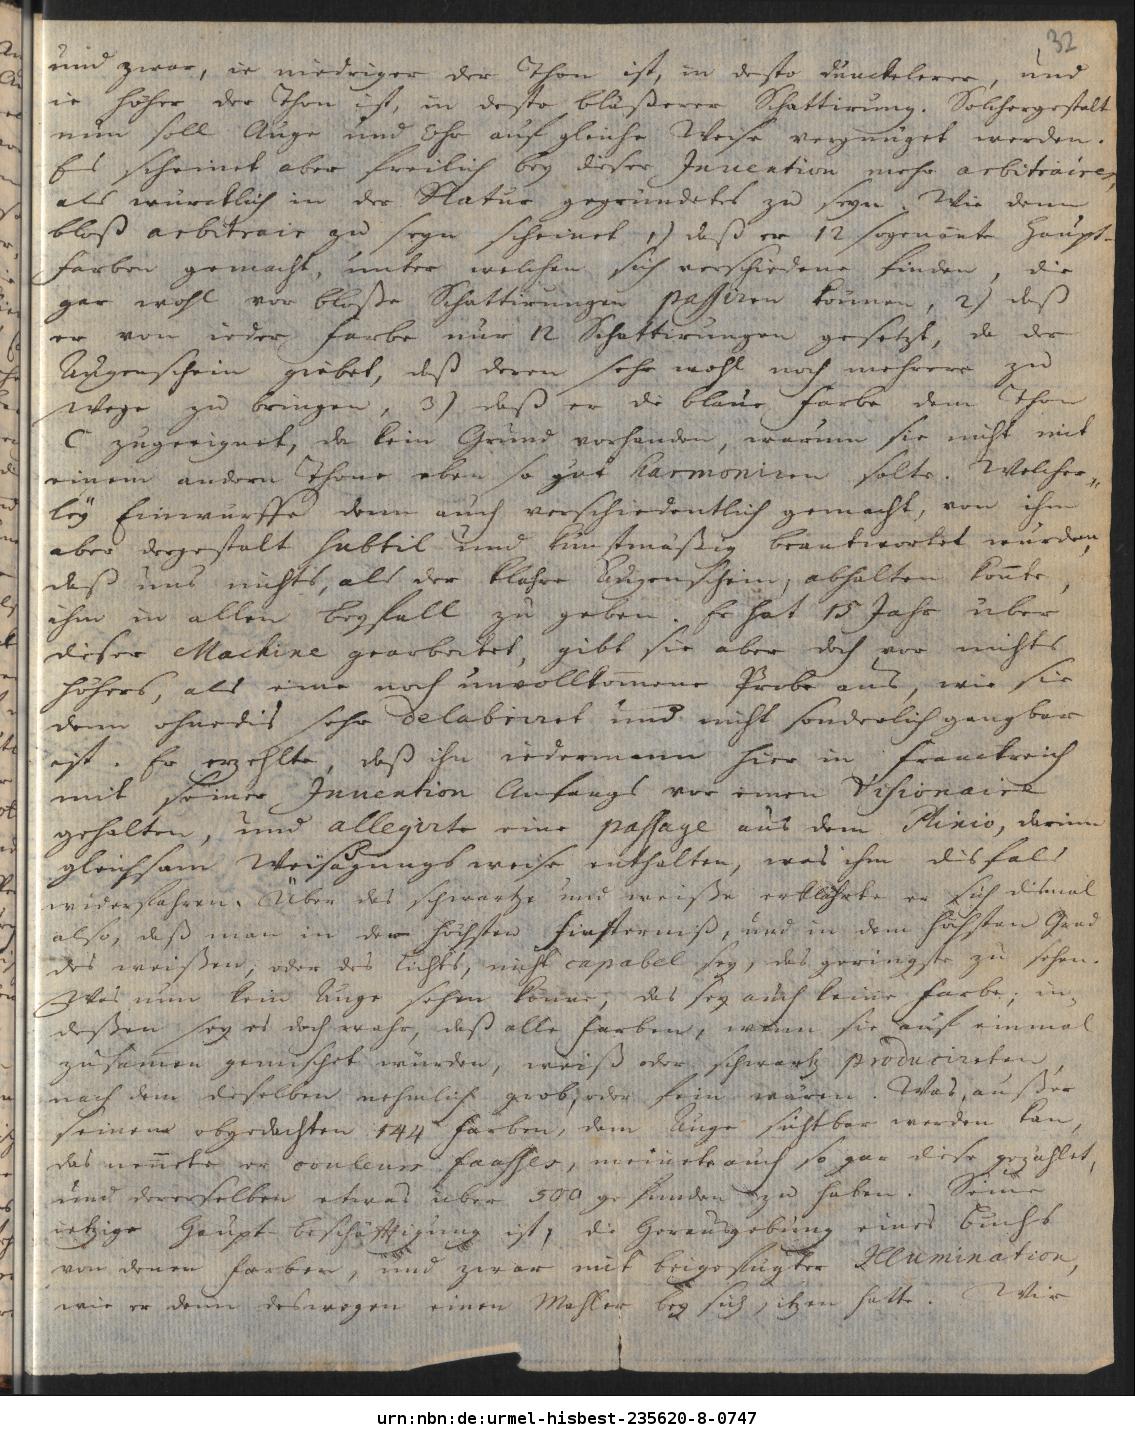 32
und zwar, ie niedriger der Thon ist, in desto dunckelerer, und
ie höher der Thon ist, in desto bläßerer Schattirung. Solchergestalt
nun soll Auge und Ohr auf gleiche Weise vergnüget werden.
Es scheinet aber freilich bey dieser Invention mehr arbitraires,
als würcklich in der Natur gegründetes zu seyn. Wie denn
bloß arbitrair zu seyn scheinet 1) daß er 12 sogenante Haupt-
farben gemacht, unter welchen sich verschiedene finden, die
gar wohl vor bloße Schattirungen passiren können, 2) daß
er von ieder Farbe nur 12 Schattirungen gesetzt, da der
Augenschein giebet, daß deren sehr wohl noch mehrere zu
Wege zu bringen, 3) daß er die blaue Farbe dem Thon
C zugeeignet, da kein Grund vorhanden, warum sie nicht mit
einem andern Thone eben so gut harmoniren solte. Welcher-
ley Einwürffe denn auch verschiedentlich gemacht, von ihm
aber dergestalt subtil und kunstmäßig beantwortet wurden,
daß uns nichts, als der klahre Augenschein, abhalten konte,
ihm in allen Beyfall zu geben. Er hat 15 Jahr über
dieser Machine gearbeitet, gibt sie aber doch vor nichts
höhers, als eine noch unvollkomene Probe aus, wie sie
denn ohnedis sehr delabrirt und nicht sonderlich gangbar
ist. Er erzehlte, daß ihn iedermann hier in Franckreich
mit seiner Invention Anfangs vor einen Visionaire
gehalten, und allegirte eine passage aus dem Plinio, darinn
gleichsam Weissagungs weise enthalten, was ihm disfals
widerfahren. Über das schwartze und weiße erklährte er sich dismal
also, daß man in der höchsten Finsterniß, und in dem höchsten Grad
des weißen, oder des Lichts, nicht capabel sey, das geringste zu sehen.
Was nun kein Auge sehen könne, das sey auch keine Farbe; in-
deßen sey es doch wahr, daß alle Farben, wenn sie auf einmal
zusamen gemischet würden, weiß oder schwartz producireten,
nach dem dieselben nehmlich grob, oder fein wären. Was, außer
seinen obgedachten 144 Farben, dem Auge sichtbar werden kan,
das nennete er couleurs fausses, meinete auch so gar diese gezählet,
und dererselben etwas über 500 gefunden zu haben. Seine
ietzige Haupt-beschäfftigung ist, die Herausgebung eines Buchs
von denen Farben, und zwar mit beigefügter Illumination,
wie er denn deswegen einen Mahler bey sich sitzen hatte. Wir
urn:nbn:de:urmel-hisbest-235620-8-0747